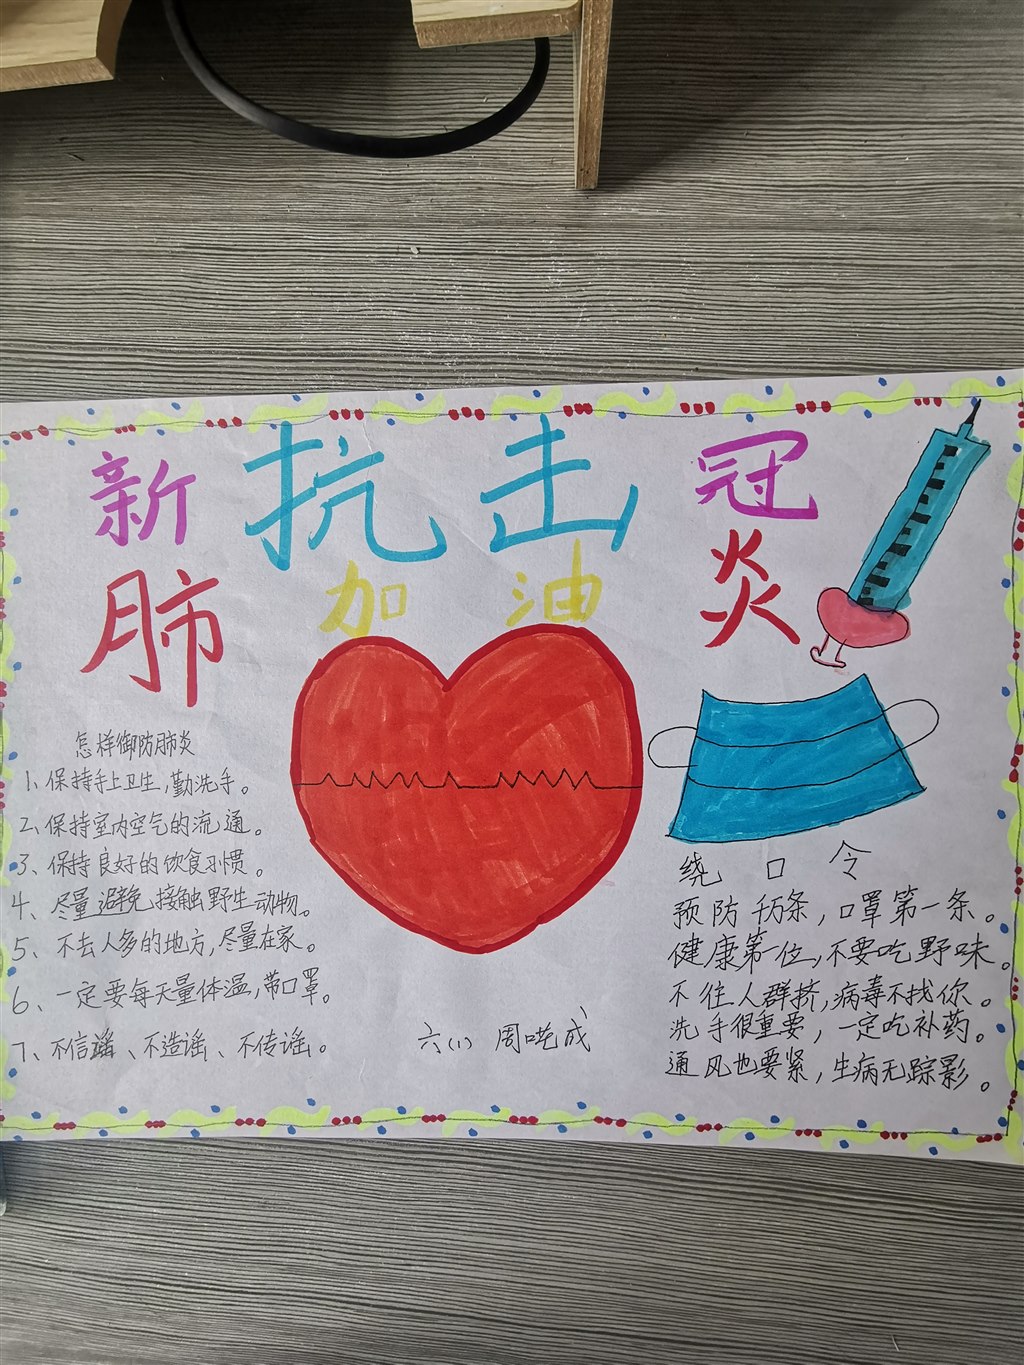 新抗击冠
肺加油炎
怎样御防肺炎
1、保持手上卫生,勤洗手。
2、保持室内空气的流通。
3、保持良好的饮食习惯。
4、尽量避免接触野生动物。
5、不去人多的地方,尽量在家。
6、一定要每天量体温,带口罩。
7、不信谣、不造谣、不传谣。
六(1) 周 成
绕口令
预防千万条,口罩第一条。
健康第一位,不要吃野味。
不往人群挤,病毒不找你。
洗手很重要,一定吃补药。
通风也要紧,生病无踪影。